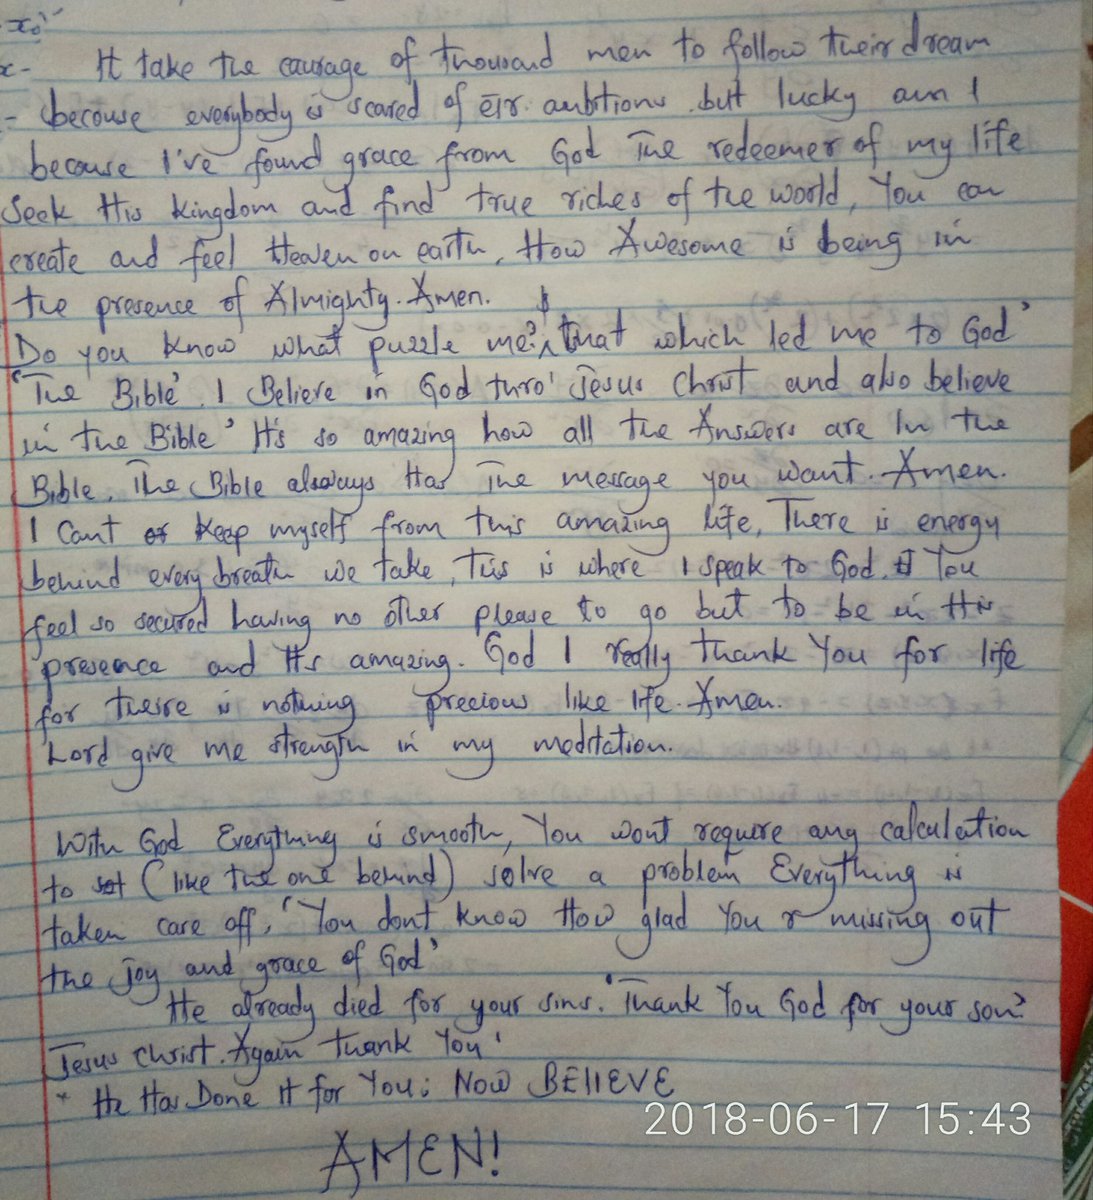 x₀
x- It take the courage of thousand men to follow their dream
- becouse everybody is scared of eir. ambitions but lucky am I
because I've found grace from God The redeemer of my life
Seek His kingdom and find true riches of the world, You can
create and feel Heaven on earth, How Awesome is being in
the presence of Almighty. Amen.
Do you know what puzzle me? that which led me to God'
'The Bible'. I Believe in God thro' Jesus Christ and also believe
in the Bible' It's so amazing how all the Answers are In the
Bible. The Bible always Has The message you want. Amen.
I Cant keep myself from this amazing life, There is energy
behind every breath we take, This is where I speak to God. You
feel so secured having no other please to go but to be in His
presence and It's amazing. God I really thank You for life
for theire is nothing precious like life. Amen.
Lord give me strength in my meditation.
With God Everything is smooth, You wont require any calculation
to (like the one behind) solve a problem Everything is
taken care off, 'You dont know How glad You r missing out
the joy and grace of God'
He already died for your sins. 'Thank You God for your son?
Jesus Christ. Again thank You'
* He Has Done It for You; Now BElIEVE
2018-06-17 15:43
AMEN!